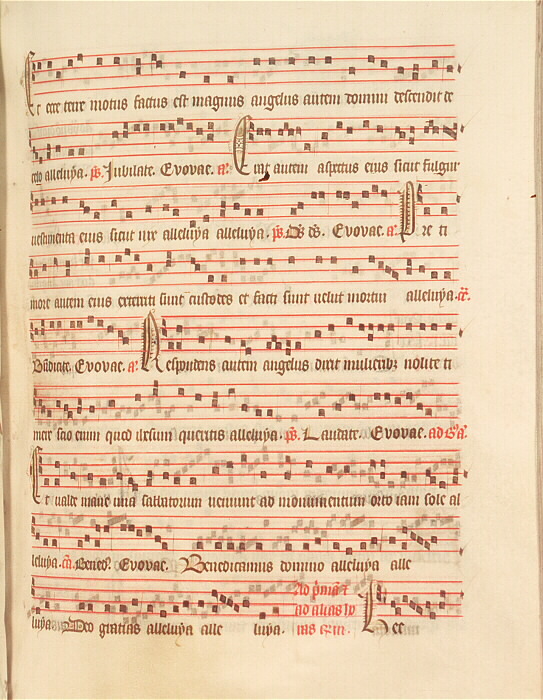 Et ecce terre motus factus est magnus angelus autem domini descendit de
celo alleluya. ps. Jubilate. Evovae. a. Erat autem aspectus eius sicut fulgur
vestimenta eius sicut nix alleluya alleluya. ps. Ds ds. Evovae. a. Pre ti
more autem eius exterriti sunt custodes et facti sunt velut mortui alleluya. cc.
Bndicite. Evovae. a. Respondens autem angelus dixit mulieribz nolite ti
mere scio enim quod ihesum queritis alleluya. ps. Laudate. Evovae. ad
Et valde mane una sabbatorum veniunt ad monumentum orto iam sole al
leluya. Evovae. Benedicamus domino alleluya alle
luya. Deo gratias alleluya alle luya. ad alias Hec